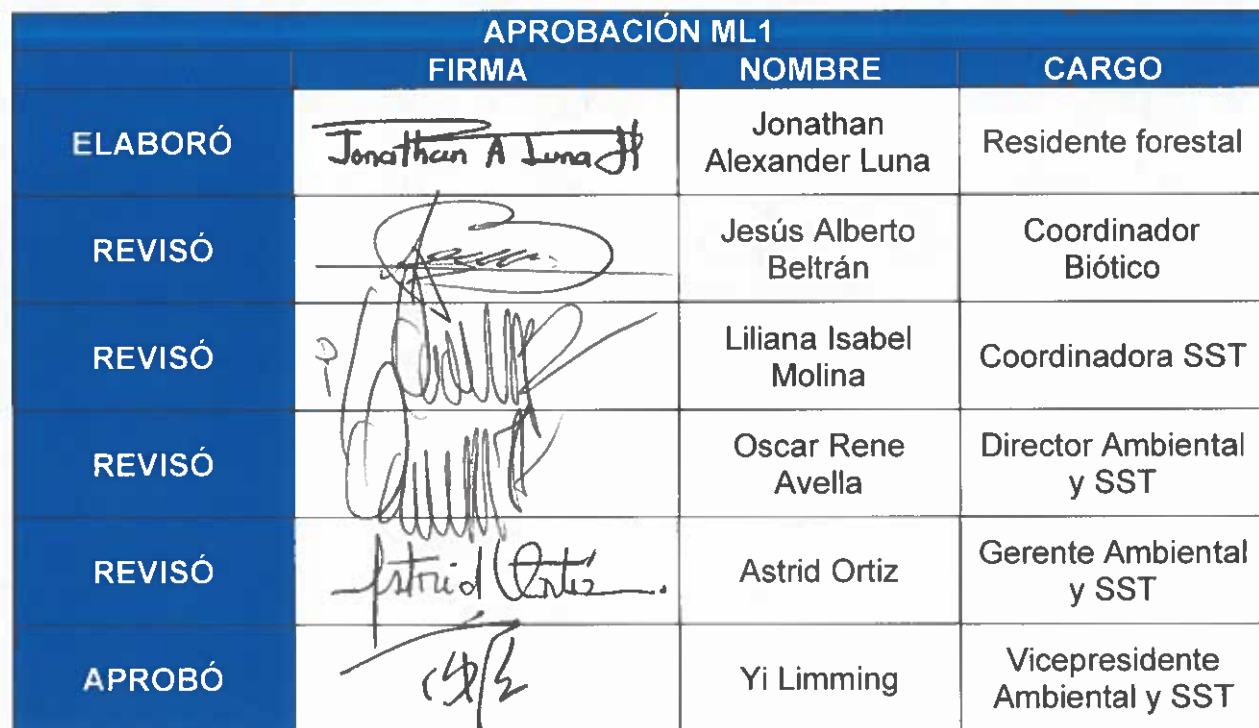 APROBACIÓN ML1
FIRMA NOMBRE CARGO
ELABORÓ Jonathan A Luna Jonathan Alexander Luna Residente forestal
REVISÓ Jesús Alberto Beltrán Coordinador Biótico
REVISÓ Liliana Isabel Molina Coordinadora SST
REVISÓ Oscar Rene Avella Director Ambiental y SST
REVISÓ Astrid Ortiz Astrid Ortiz Gerente Ambiental y SST
APROBÓ Yi Limming Vicepresidente Ambiental y SST